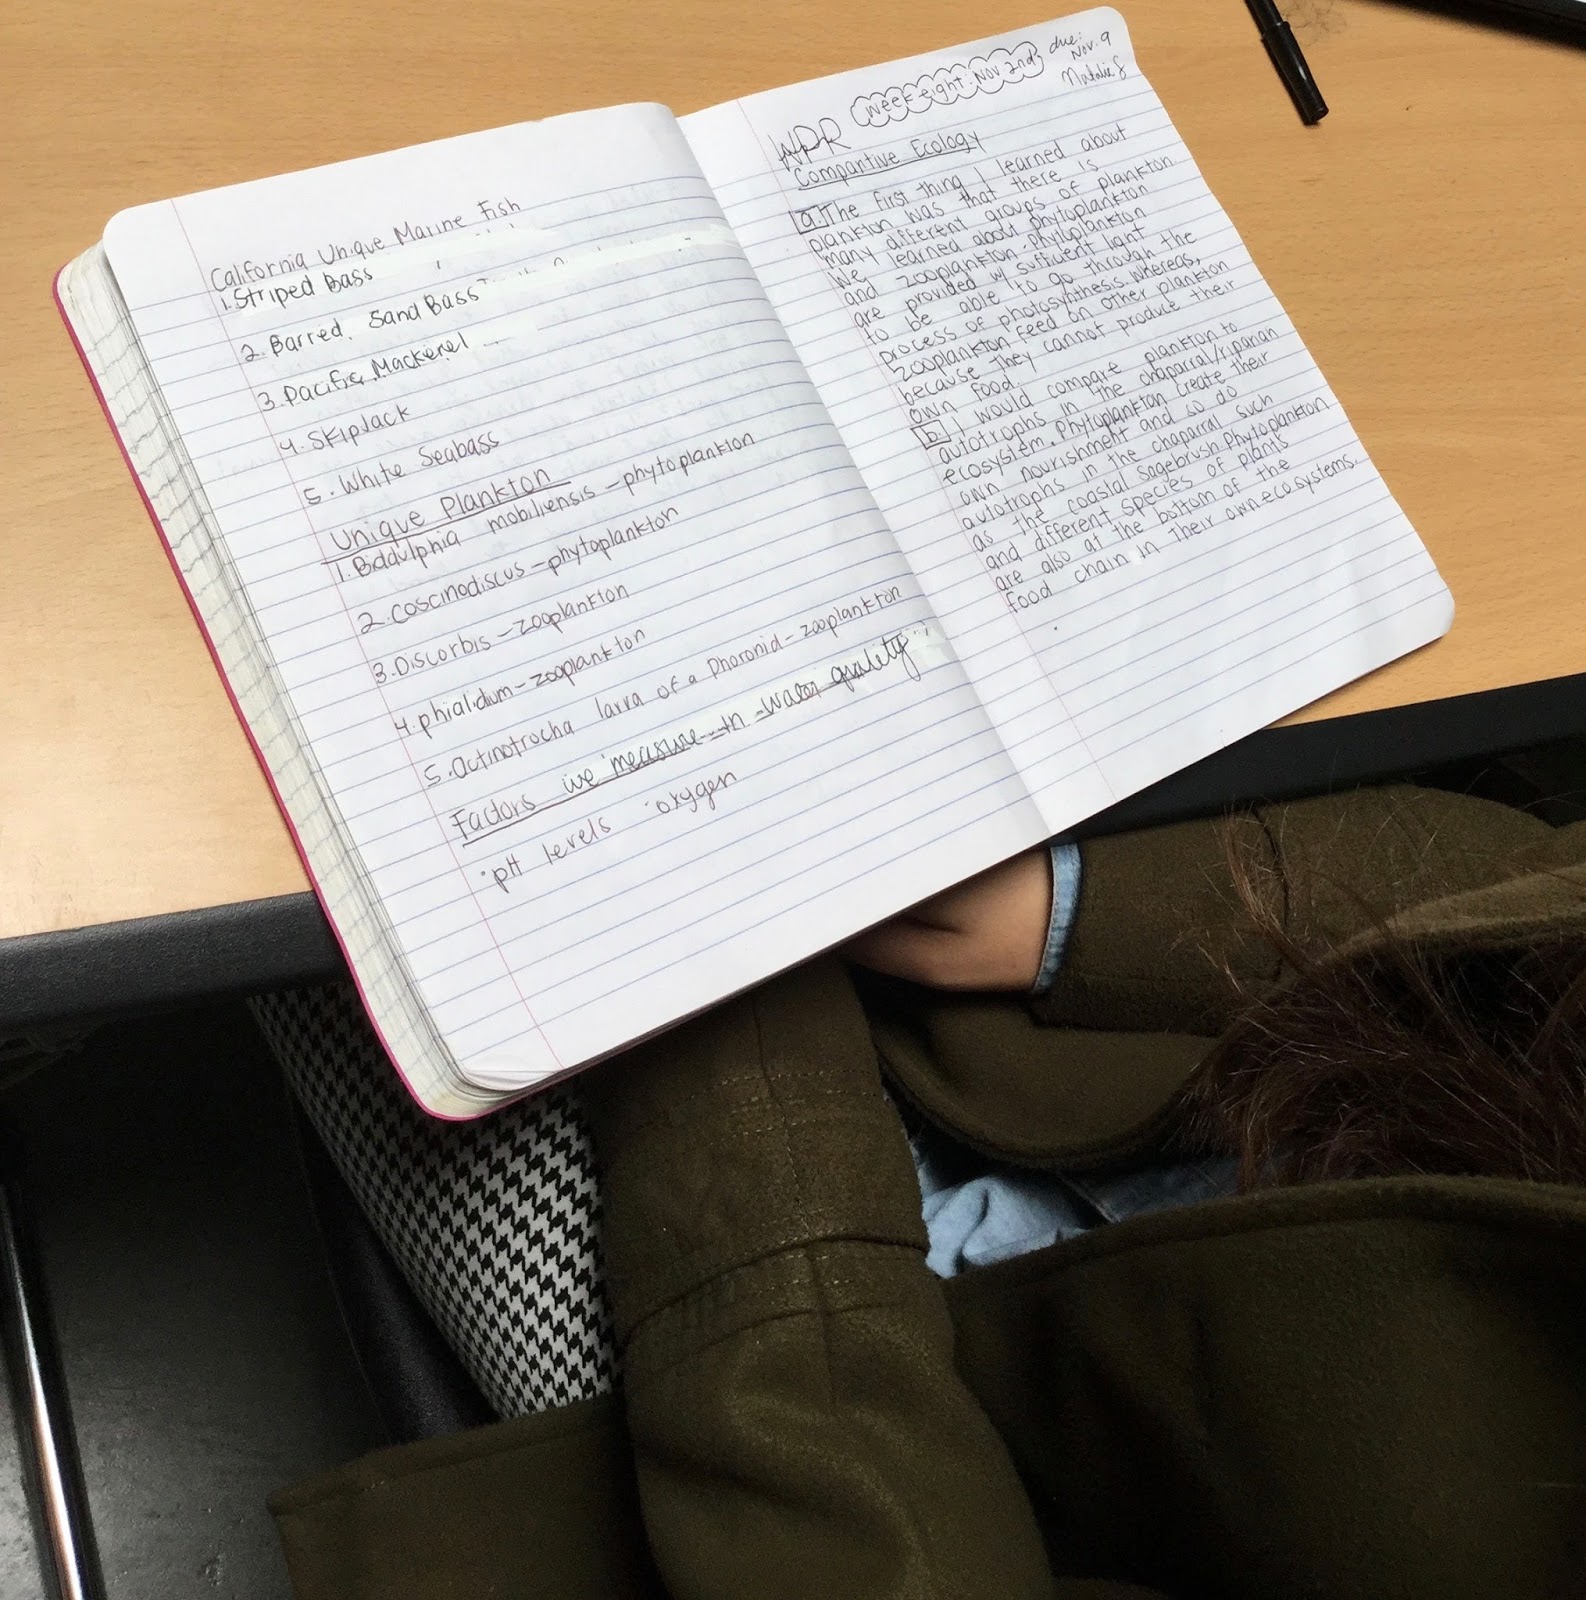 California Unique Marine Fish
1. Striped Bass
2. Barred Sand Bass
3. Pacific Mackerel
4. Skipjack
5. White Seabass
Unique Plankton
1. Biddulphia mobiliensis - phytoplankton
2. Coscinodiscus - phytoplankton
3. Discorbis - zooplankton
4. phialidium - zooplankton
5. actinotrocha larva of a Phoronid - zooplankton
Factors we measure in water quality
· pH levels · oxygen
Week eight: Nov 2nd
due:
Nov. 9
Natalie S
Comparitive Ecology
a. The first thing I learned about
plankton was that there is
many different groups of plankton.
We learned about phytoplankton
and zooplankton. Phytoplankton
are provided w/ sufficient light
to be able to go through the
process of photosynthesis. Whereas,
zooplankton feed on other plankton
because they cannot produce their
own food.
b. I would compare plankton to
autotrophs in the chaparral/riparian
ecosystem. Phytoplankton create their
own nourishment and so do
autotrophs in the chaparral such
as the coastal sagebrush. Phytoplankton
and different species of plants
are also at the bottom of the
food chain in their own ecosystems.